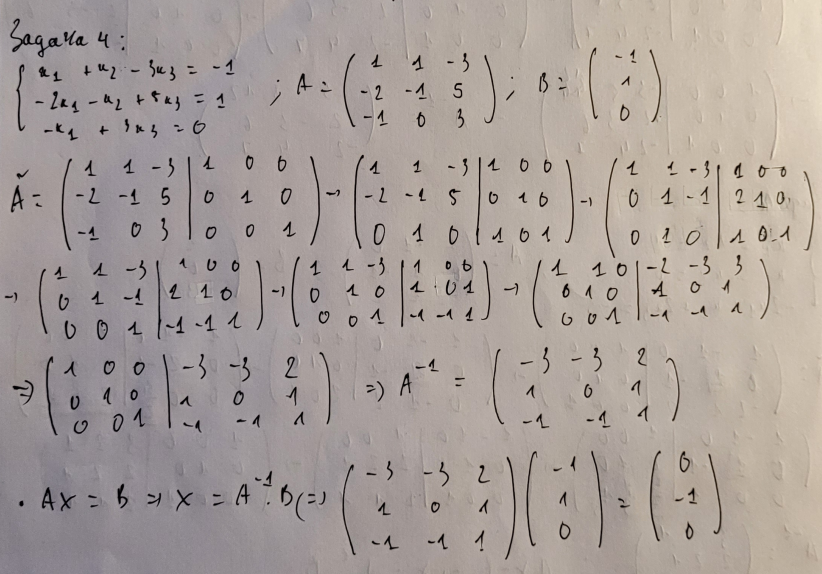 Задача 4:
{ x₁ + x₂ - 3x₃ = -1
-2x₁ - x₂ + 5x₃ = 1
-x₁ + 3x₃ = 0
; A = ( 1 1 -3
-2 -1 5
-1 0 3 ) ; B = ( -1
1
0 )
Ã = ( 1 1 -3 | 1 0 0
-2 -1 5 | 0 1 0
-1 0 3 | 0 0 1 ) → ( 1 1 -3 | 1 0 0
-2 -1 5 | 0 1 0
0 1 0 | 1 0 1 ) → ( 1 1 -3 | 1 0 0
0 1 -1 | 2 1 0
0 1 0 | 1 0 1 )
→ ( 1 1 -3 | 1 0 0
0 1 -1 | 2 1 0
0 0 1 | -1 -1 1 ) → ( 1 1 -3 | 1 0 0
0 1 0 | 1 0 1
0 0 1 | -1 -1 1 ) → ( 1 1 0 | -2 -3 3
0 1 0 | 1 0 1
0 0 1 | -1 -1 1 )
⇒ ( 1 0 0 | -3 -3 2
0 1 0 | 1 0 1
0 0 1 | -1 -1 1 ) ⇒ A⁻¹ = ( -3 -3 2
1 0 1
-1 -1 1 )
· AX = B ⇒ X = A⁻¹ · B (⇒ ( -3 -3 2
1 0 1
-1 -1 1 ) ( -1
1
0 ) = ( 0
-1
0 )